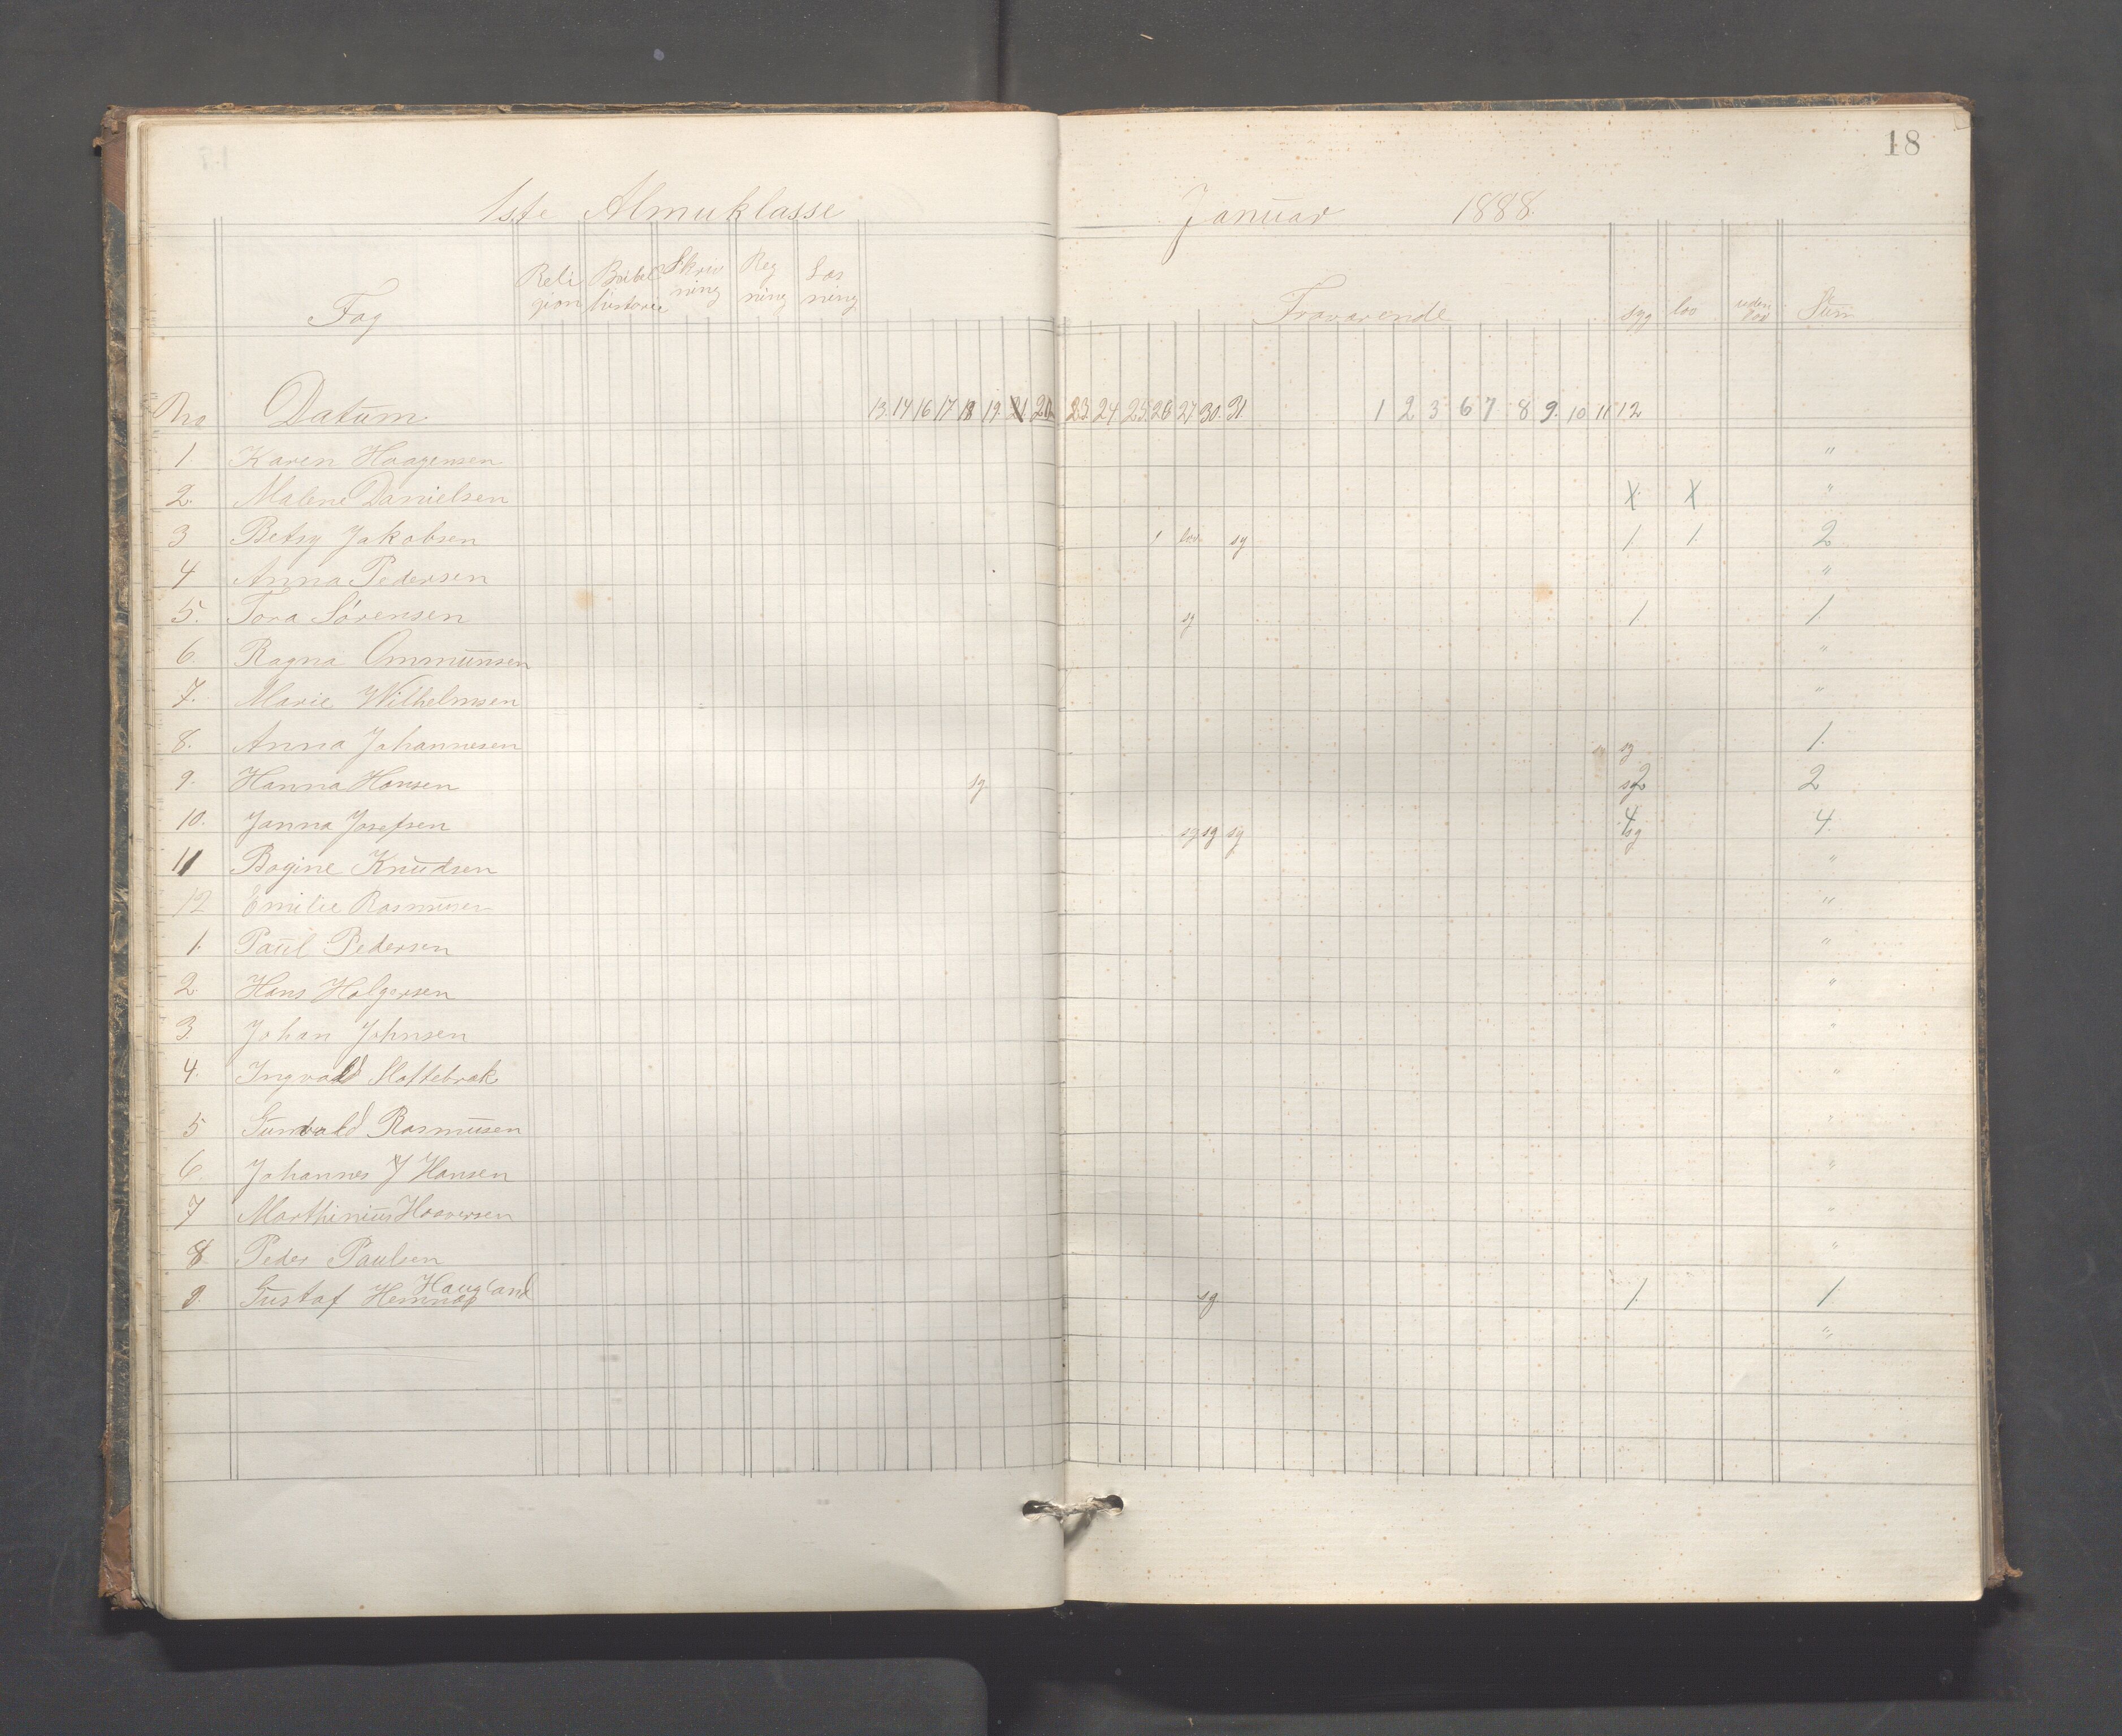 18
1ste Almuklasse Januar 1888
Fag Religion Bibelhistorie Skrivning Regning Læsning Fraværende syg lov uden lov Sum
No Datum 13. 14 16 17 18 19. 21. 20 23. 24 25. 26 27 30. 31. 1 2 3 6 7 8 9. 10 11 12
1. Karen Haagensen "
2. Malene Danielsen X X "
3 Betsy Jakobsen lov sg 1 1. 2
4 Anna Pedersen "
5. Tora Sørensen sg 1. 1.
6. Ragna Ommunsen "
7. Marie Wilhelmsen "
8. Anna Johannesen sg 1.
9. Hanna Hansen sg sg 2 2
10. Janna Josefsen sg sg sg 4 sg 4.
11 Bogine Knudsen "
12 Emilie Rasmusen "
1. Paul Pedersen "
2. Hans Holgersen "
3. Johan Johnsen "
4. Ingvald Slottebrak "
5 Gunvald Rasmusen "
6. Johannes J Hansen "
7 Marthinius Haaversen "
8. Peder Paulsen "
9. Gustaf Haugland sg 1. 1.
"